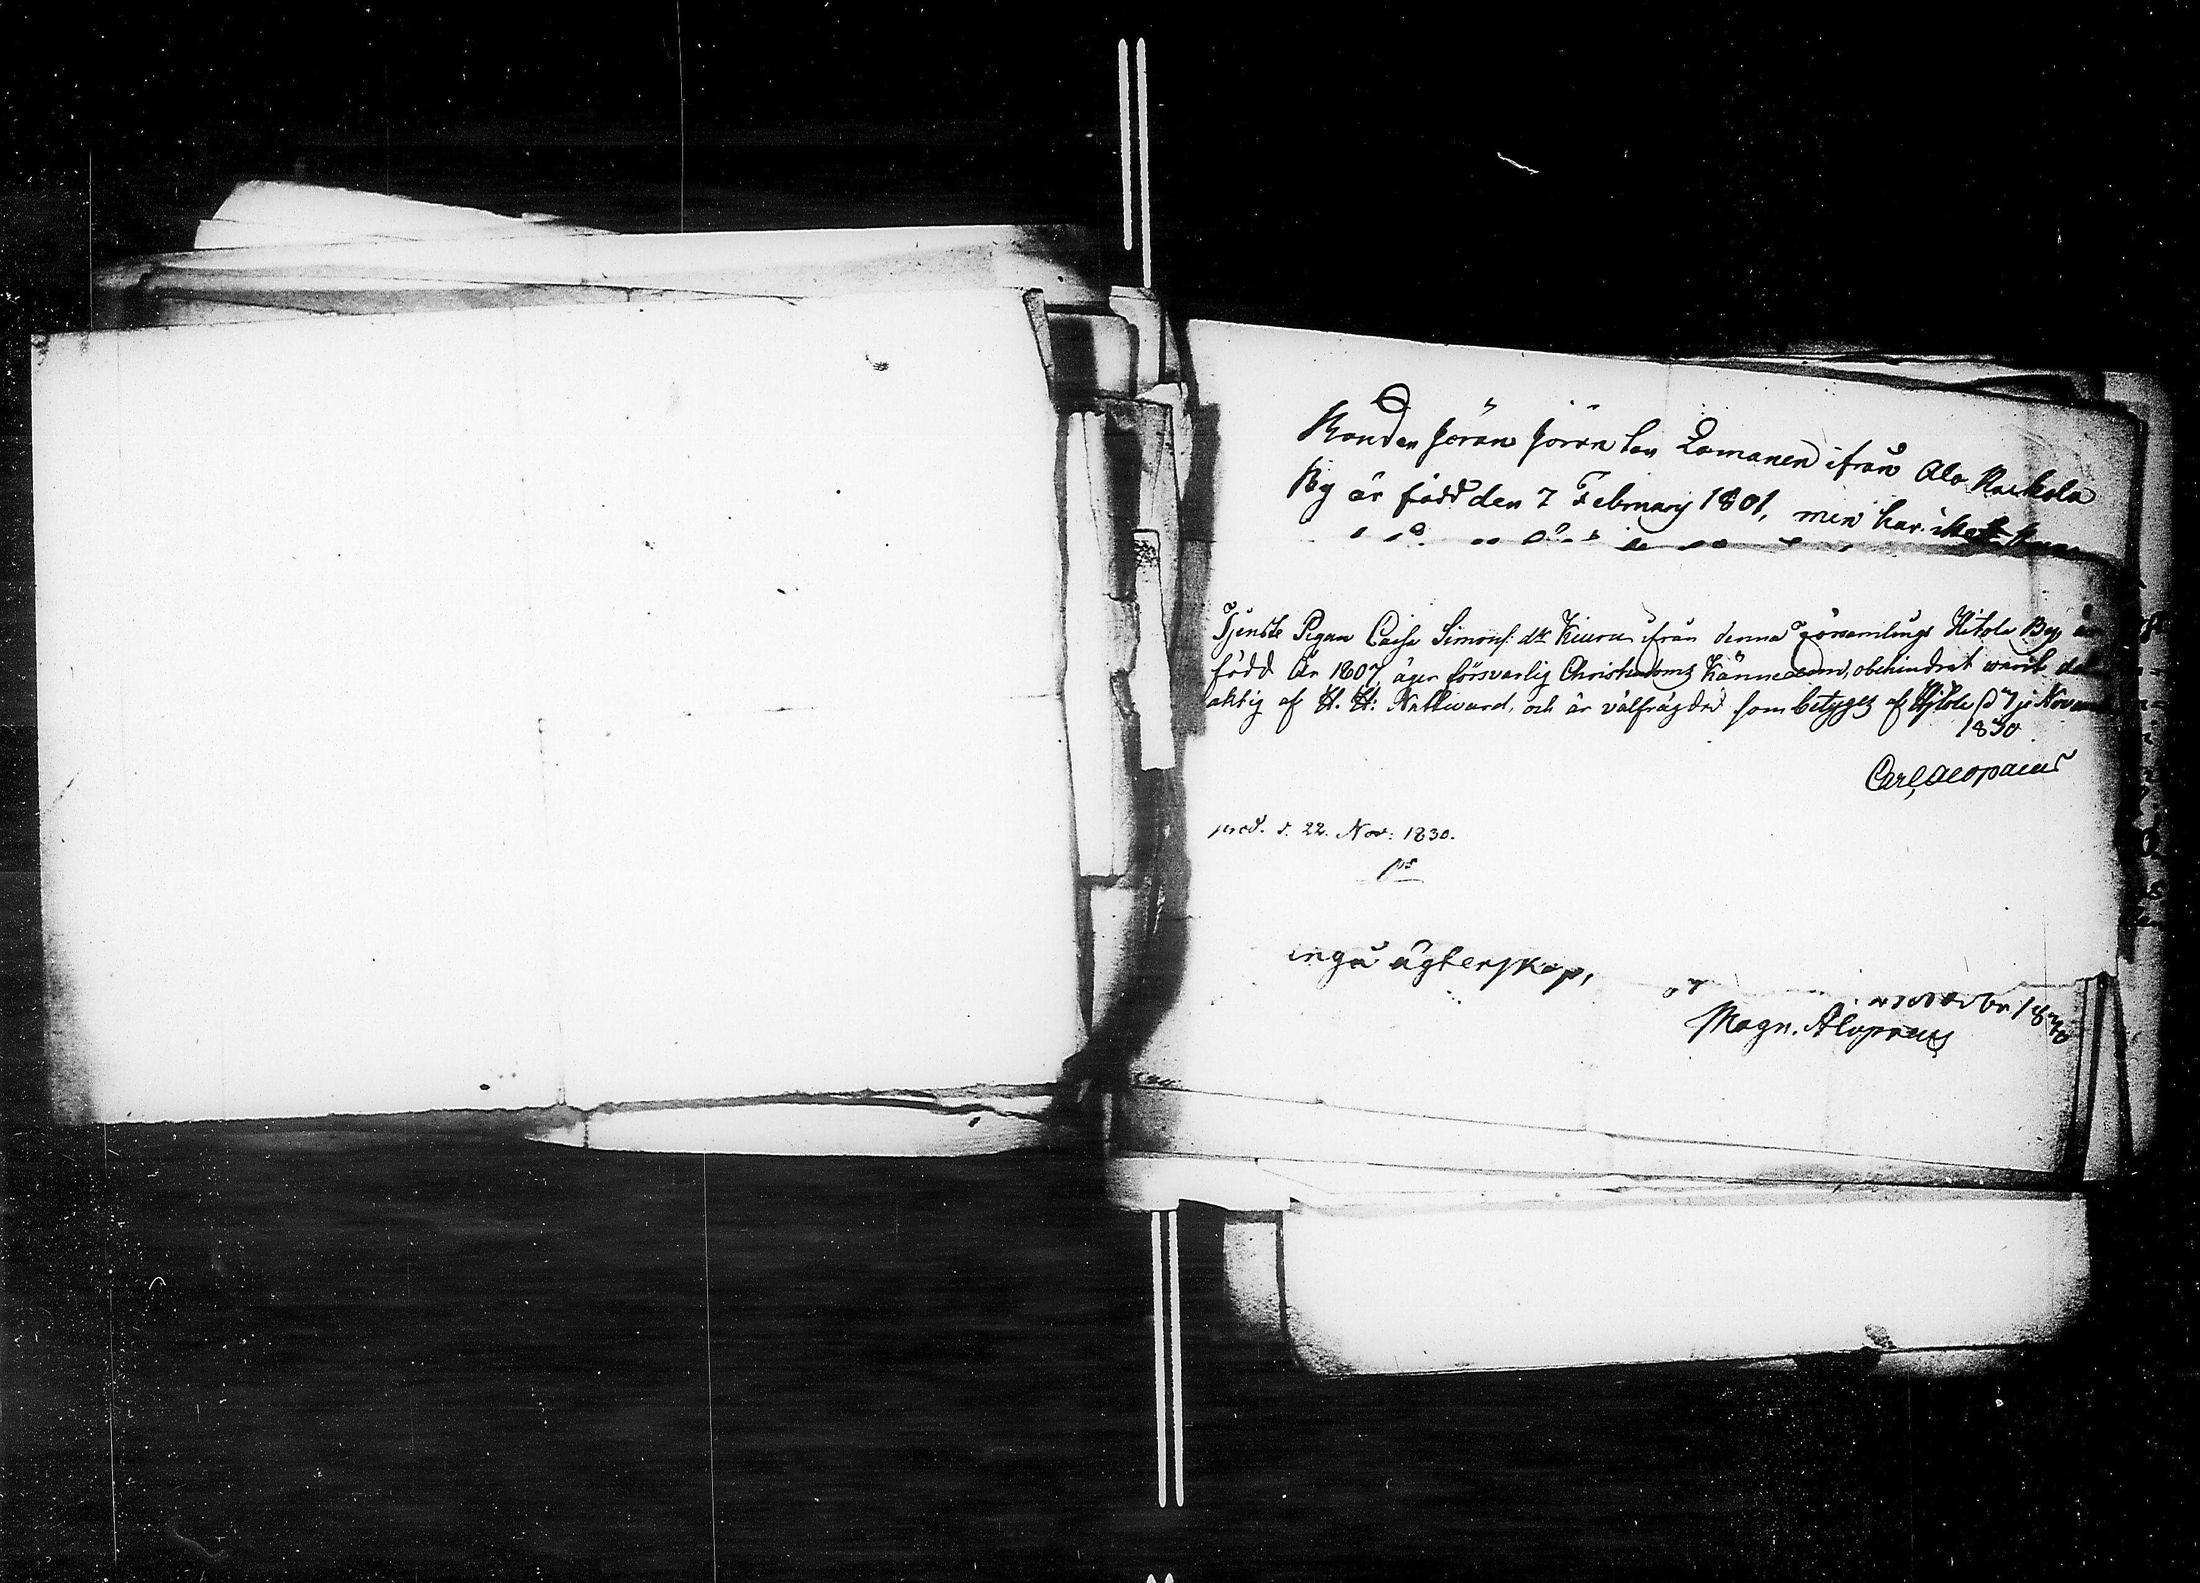 Bonden Jöran Jöran Son Lomanen ifrån Ala Kuckola
By är född den 7 February 1801, men har
Tjenste Pigan Caisa Simons dtr Kiuru ifrån denna Församlings Hitola By är
född År 1807, äger försvarlig Christendoms Kännedom, obehindrat warit del
aktig af H. H: Nattward, och är välfrägdad som betyges af Hitola d 7 Novem
1830
Carl Alopaeus
prod. d. 22. Nov: 1830.
ps
ingå ägtenskap,
br 1830
Magn. Alopæus